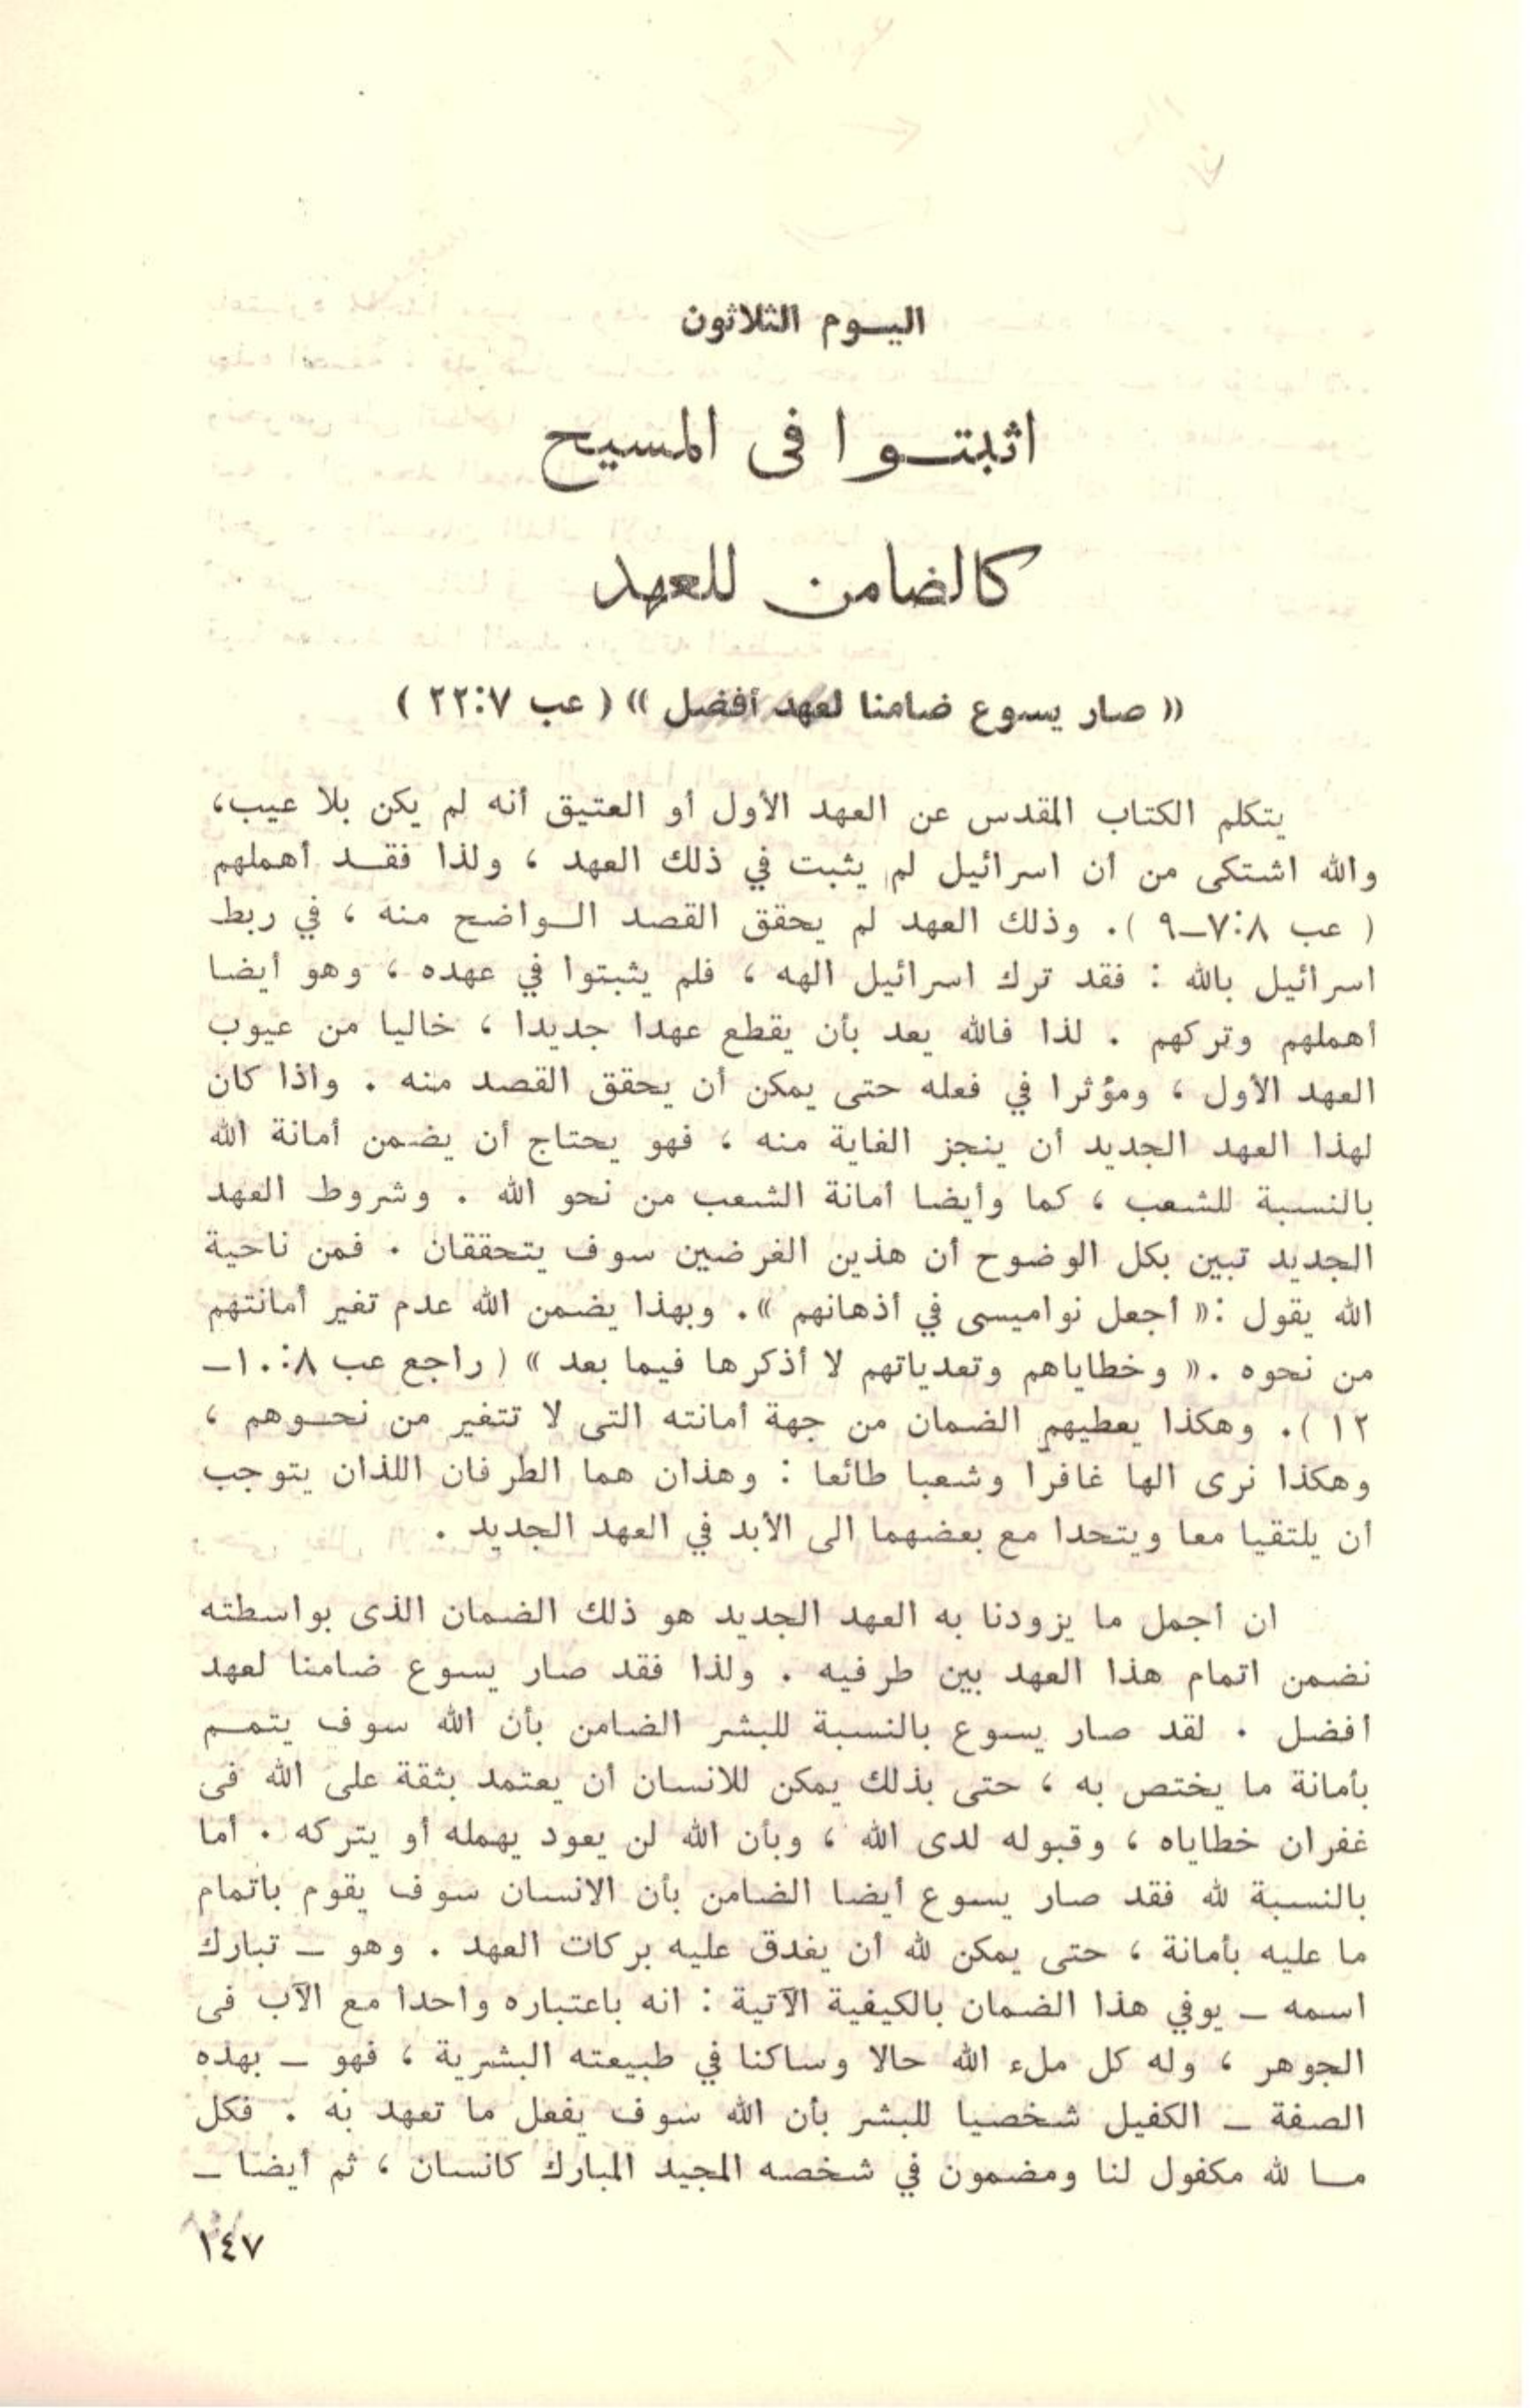 اليوم الثلاثون
اثبتوا فى المسيح
كالضامن للعهد
« صار يسوع ضامنا لعهد أفضل » ( عب ٢٢:٧ )
يتكلم الكتاب المقدس عن العهد الأول أو العتيق أنه لم يكن بلا عيب،
والله اشتكى من أن اسرائيل لم يثبت في ذلك العهد ، ولذا فقد أهملهم
( عب ٧:٨–٩ ). وذلك العهد لم يحقق القصد الواضح منه ، في ربط
اسرائيل بالله : فقد ترك اسرائيل الهه ، فلم يثبتوا في عهده ، وهو أيضا
أهملهم وتركهم . لذا فالله يعد بأن يقطع عهدا جديدا ، خاليا من عيوب
العهد الأول ، ومؤثرا في فعله حتى يمكن أن يحقق القصد منه . واذا كان
لهذا العهد الجديد أن ينجز الغاية منه ، فهو يحتاج أن يضمن أمانة الله
بالنسبة للشعب ، كما وأيضا أمانة الشعب من نحو الله . وشروط العهد
الجديد تبين بكل الوضوح أن هذين الغرضين سوف يتحققان . فمن ناحية
الله يقول :« أجعل نواميسى في أذهانهم ». وبهذا يضمن الله عدم تغير أمانتهم
من نحوه .« وخطاياهم وتعدياتهم لا أذكرها فيما بعد » ( راجع عب ١٠:٨–
١٢ ). وهكذا يعطيهم الضمان من جهة أمانته التى لا تتغير من نحوهم ،
وهكذا نرى الها غافرا وشعبا طائعا : وهذان هما الطرفان اللذان يتوجب
أن يلتقيا معا ويتحدا مع بعضهما الى الأبد في العهد الجديد .
ان أجمل ما يزودنا به العهد الجديد هو ذلك الضمان الذى بواسطته
نضمن اتمام هذا العهد بين طرفيه . ولذا فقد صار يسوع ضامنا لعهد
أفضل . لقد صار يسوع بالنسبة للبشر الضامن بأن الله سوف يتمم
بأمانة ما يختص به ، حتى بذلك يمكن للانسان أن يعتمد بثقة على الله فى
غفران خطاياه ، وقبوله لدى الله ، وبأن الله لن يعود يهمله أو يتركه . أما
بالنسبة لله فقد صار يسوع أيضا الضامن بأن الانسان سوف يقوم باتمام
ما عليه بأمانة ، حتى يمكن لله أن يغدق عليه بركات العهد . وهو – تبارك
اسمه – يوفي هذا الضمان بالكيفية الآتية : انه باعتباره واحدا مع الآب فى
الجوهر ، وله كل ملء الله حالا وساكنا في طبيعته البشرية ، فهو – بهذه
الصفة – الكفيل شخصيا للبشر بأن الله سوف يفعل ما تعهد به . فكل
ما لله مكفول لنا ومضمون في شخصه المجيد المبارك كانسان ، ثم أيضا –
١٤٧